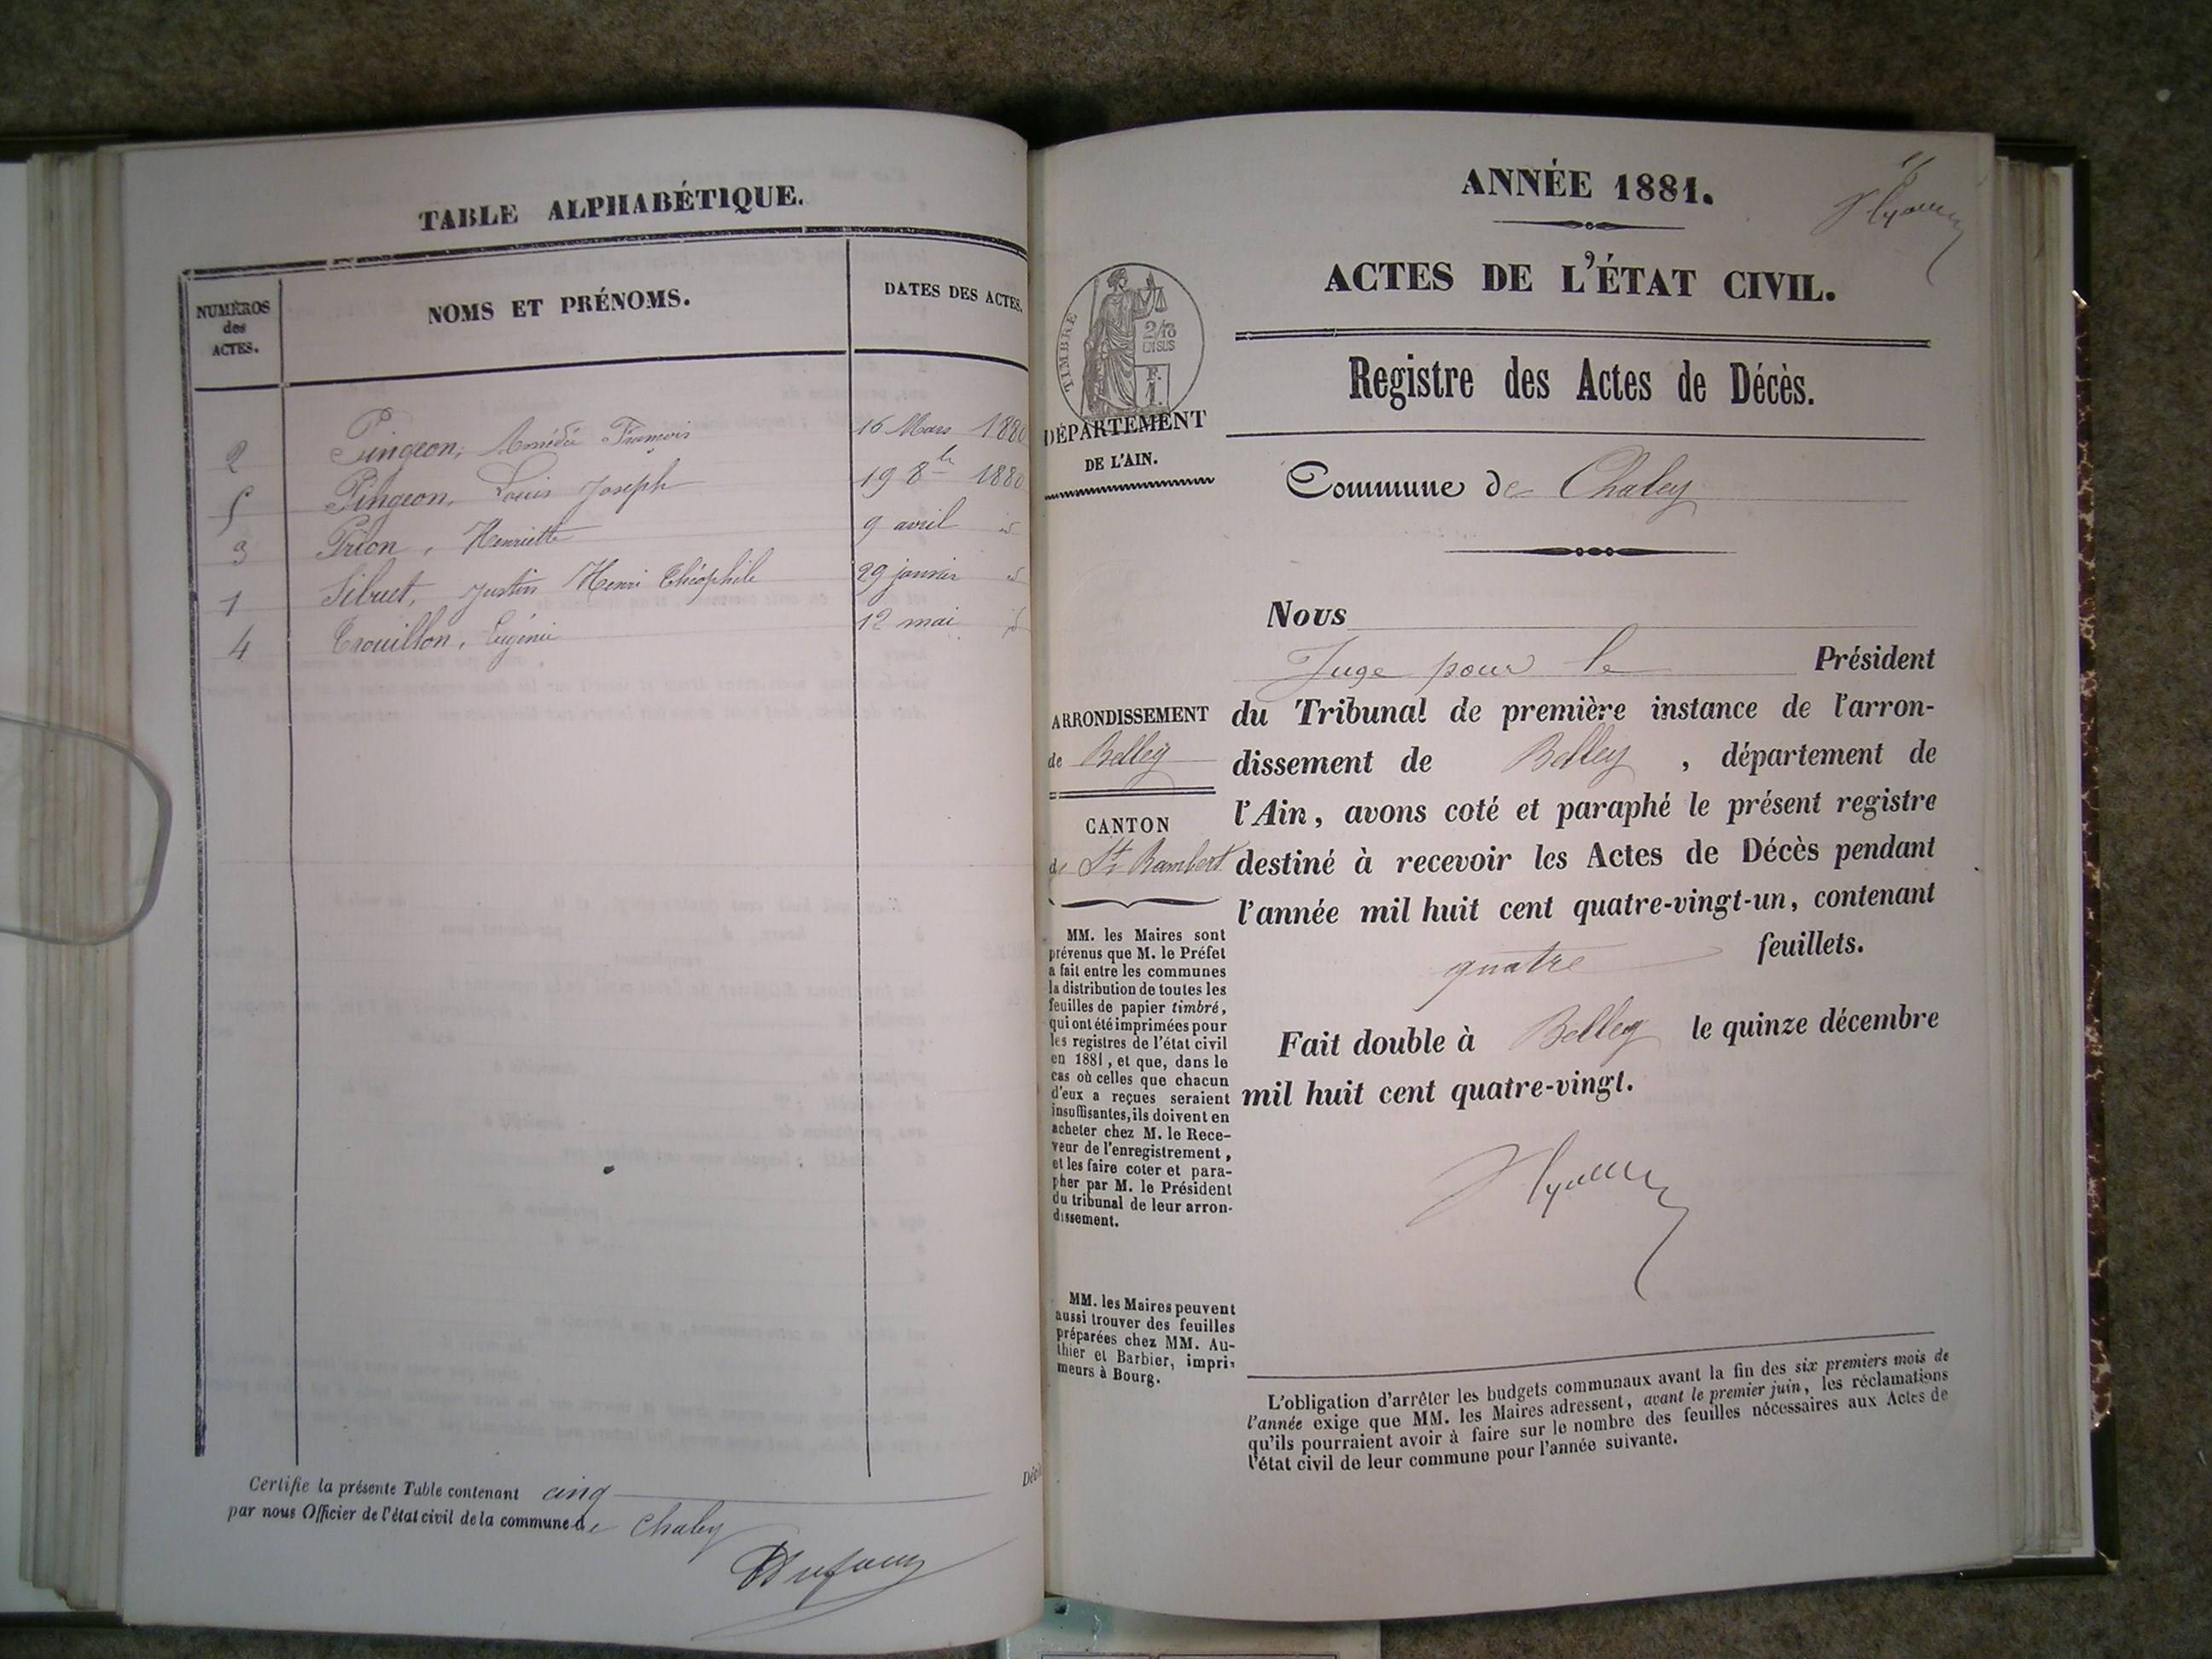 TABLE ALPHABÉTIQUE.
NUMÉROS
des
ACTES.
NOMS ET PRÉNOMS.
DATES DES ACTES.
2 Pingeon, Amédée François 16 Mars 1880
5 Pingeon, Louis Joseph 19 8bre 1880
3 Prion, Henriette 9 avril id
1 Sibuet, Justin Henri Théophile 29 janvier id
4 Trouillon, Eugénie 12 mai id
Certifie la présente Table contenant cinq
par nous Officier de l'état civil de la commune de Chaley
Dufour
ANNÉE 1881.
ACTES DE L'ÉTAT CIVIL.
Registre des Actes de Décès.
TIMBRE
2/10
EN SUS
F.
1.
DÉPARTEMENT
DE L'AIN.
Commune de Chaley
ARRONDISSEMENT
de Belley
CANTON
de St Rambert
MM. les Maires sont
prévenus que M. le Préfet
a fait entre les communes
la distribution de toutes les
feuilles de papier timbré,
qui ont été imprimées pour
les registres de l'état civil
en 1881, et que, dans le
cas où celles que chacun
d'eux a reçues seraient
insuffisantes, ils doivent en
acheter chez M. le Rece-
veur de l'enregistrement,
et les faire coter et para-
pher par M. le Président
du tribunal de leur arron-
dissement.
MM. les Maires peuvent
aussi trouver des feuilles
préparées chez MM. Au-
thier et Barbier, impri-
meurs à Bourg.
Nous
Juge pour le Président
du Tribunal de première instance de l'arron-
dissement de Belley, département de
l'Ain, avons coté et paraphé le présent registre
destiné à recevoir les Actes de Décès pendant
l'année mil huit cent quatre-vingt-un, contenant
quatre feuillets.
Fait double à Belley le quinze décembre
mil huit cent quatre-vingt.
L'obligation d'arrêter les budgets communaux avant la fin des six premiers mois de
l'année exige que MM. les Maires adressent, avant le premier juin, les réclamations
qu'ils pourraient avoir à faire sur le nombre des feuilles nécessaires aux Actes de
l'état civil de leur commune pour l'année suivante.